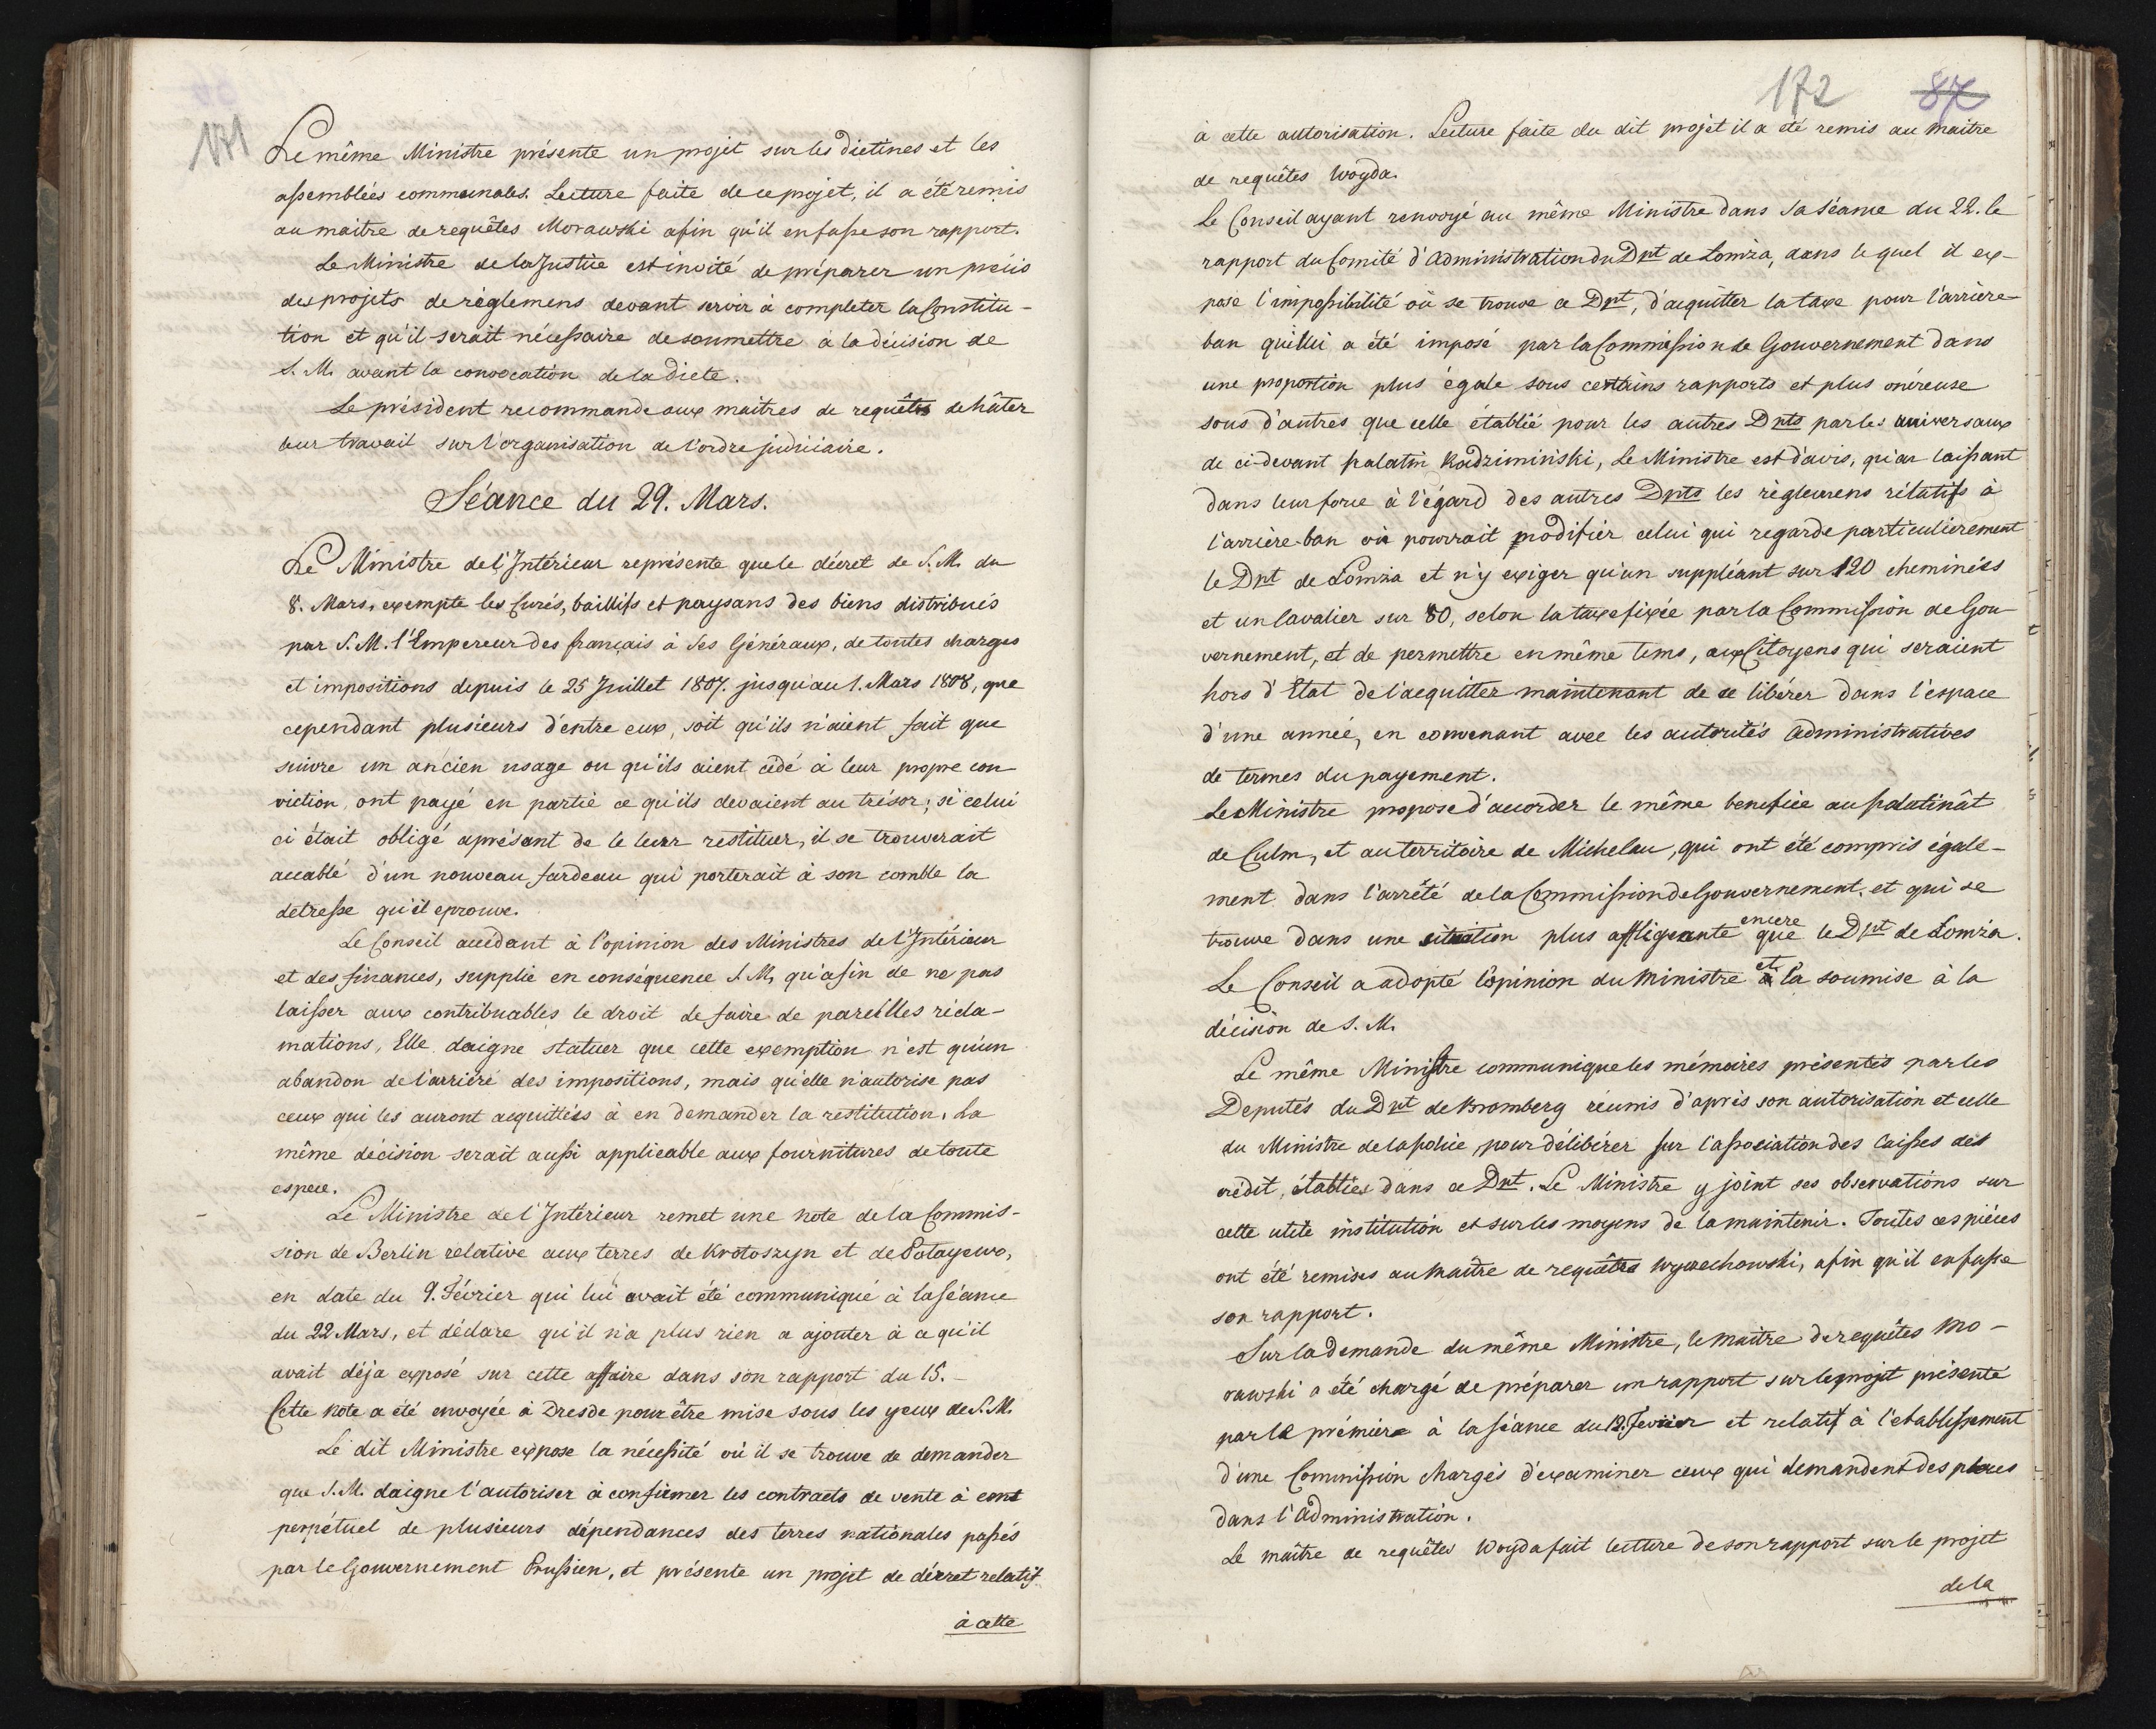 171
Le même Ministre présente un projet sur les dietines et les
assemblées communales. Lecture faite de ce projet, il a été remis
au maitre de requêtes Morawski afin qu'il en fasse son rapport.
Le Ministre de la Justice est invité de préparer un précis
des projets de règlemens devant servir à completer la Constitu-
tion et qu'il serait nécessaire de soumettre à la décision de
S. M. avant la convocation de la diete.
Le président recommande aux maitres de requêtes de hâter
leur travail sur l'organisation de l'ordre judiciaire.
Séance du 29. Mars.
Le Ministre de l'Intérieur représente que le décret de S. M. du
8. Mars, exempte les Curés, baillifs et paysans des biens distribués
par S. M. l'Empereur des français à ses Généraux, de toutes charges
et impositions depuis le 25 Juillet 1807. jusqu'au 1. Mars 1808, que
cependant plusieurs d'entre eux, soit qu'ils n'aient fait que
suivre un ancien usage ou qu'ils aient cédé à leur propre con
viction, ont payé en partie ce qu'ils devaient au trésor; si celui
ci était obligé aprésant de le leur restituer, il se trouverait
accablé d'un nouveau fardeau qui porterait à son comble la
detresse qu'il eprouve.
Le Conseil accédant à l'opinion des Ministres de l'Intérieur
et des finances, supplie en conséquence S. M. qu'afin de ne pas
laisser aux contribuables le droit de faire de pareilles récla-
mations, Elle daigne statuer que cette exemption n'est qu'un
abandon de l'arriéré des impositions, mais qu'elle n'autorise pas
ceux qui les auront acquittées à en demander la restitution. La
même décision serait aussi applicable aux fournitures de toute
espece.
Le Ministre de l'Intérieur remet une note de la Commis-
sion de Berlin relative aux terres de Krotoszyn et de Potayewo,
en date du 9. Février qui lui avait été communiqué à la séance
du 22 Mars, et déclare qu'il n'a plus rien a ajouter à ce qu'il
avait déja exposé sur cette affaire dans son rapport du 15.-
Cette Note a été envoyée à Dresde pour être mise sous les yeux de S. M.
Le dit Ministre expose la nécessité où il se trouve de demander
que S. M. daigne l'autoriser à confirmer les contracts de vente à cent
perpétuel de plusieurs dépendances des terres nationales passés
par le Gouvernement Prussien, et présente un projet de décret relatif
à cette
172 87
à cette autorisation. Lecture faite du dit projet il a été remis au Maitre
de requêtes Woyda.
Le Conseil ayant renvoyé au même Ministre dans sa séance du 22. le
rapport du Comité d'Administration du Dpt de Lomza, dans lequel il ex-
pose l'impossibilité où se trouve ce Dpt, d'acquitter la taxe pour l'arriere-
ban qui lui a été imposé par la Commission de Gouvernement dans
une proportion plus égale sous certains rapports et plus onéreuse
sous d'autres que celle établie pour les autres Dpts par les universaux
de ci-devant palatin Radzimiński, Le Ministre est d'avis, qu'en laissant
dans leur force à l'égard des autres Dpts les règlemens rélatifs à
l'arrière-ban on pourrait modifier celui qui regarde particulièrement
le Dpt de Lomza et n'y exiger qu'un suppléant sur 120 cheminées
et un Cavalier sur 80, selon la taxe fixée par la Commission de Gou
vernement, et de permettre en même tems, aux Citoyens qui seraient
hors d'Etat de l'acquitter maintenant de se libérer dans l'espace
d'une année, en convenant avec les autorités administratives
de termes du payement.
Le Ministre propose d'accorder le même benefice au palatinât
de Culm, et au territoire de Michelau, qui ont été compris égale-
ment dans l'arrêté de la Commission de Gouvernement, et qui se
trouve dans une situation plus affligeante encore que le Dpt de Lomza.
Le Conseil a adopté l'opinion du Ministre et l'a soumise à la
décision de S. M.
Le même Ministre communique les mémoires présentés par les
Deputés du Dpt de Bromberg réunis d'après son autorisation et celle
du Ministre de la police, pour délibérer sur l'association des Caisses des
crédit, établies dans ce Dpt. Le Ministre y joint ses observations sur
cette utile institution et sur les moyens de la maintenir. Toutes ces piéces
ont été remises au Maitre de requêtes Wyczechowski, afin qu'il en fasse
son rapport.
Sur la demande du même Ministre, le maitre de requêtes Mo-
rawski a été chargé de préparer un rapport sur le projet présenté
par le prémière à la séance du 12. Fevrier et relatif à l'etablissement
d'une Commission chargés d'examiner ceux qui demandent des places
dans l'Administration.
Le maitre de requêtes Woyda fait lectture de son rapport sur le projet
de la